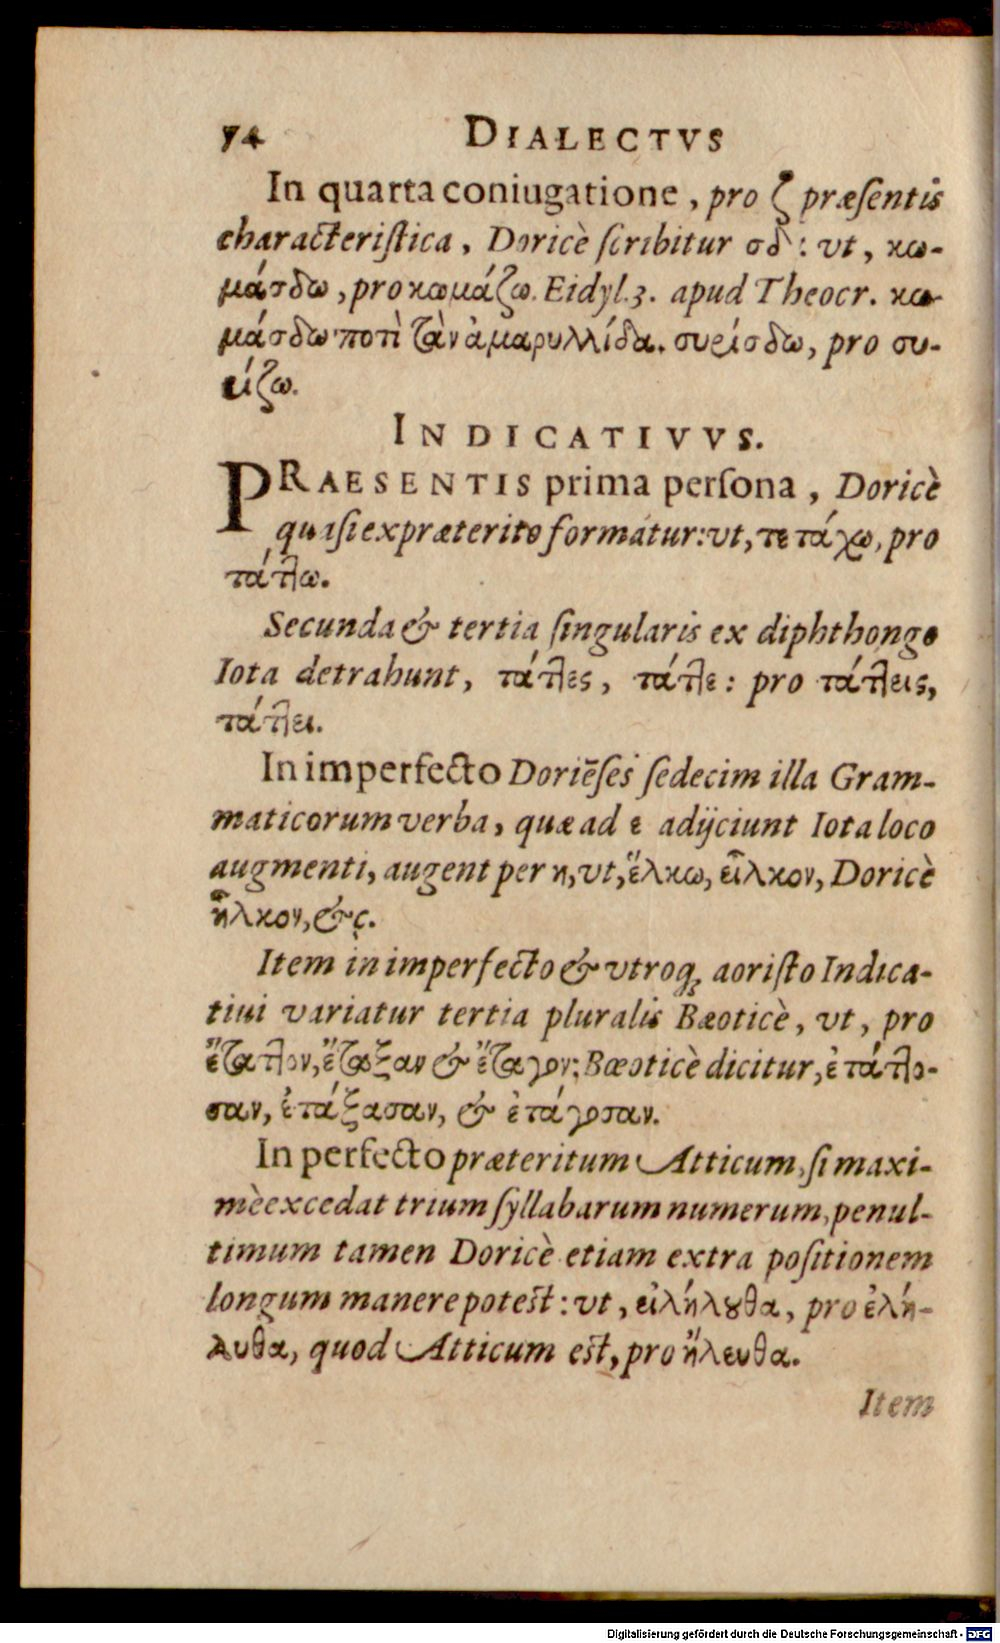 74 DIALECTVS
In quarta coniugatione, pro ζ præſentis
characteriſtica, Doricè ſcribitur σδ: vt, κω-
μάσδω, pro κωμάζω. Eidyl. 3. apud Theocr. κω-
μάσδω ποτὶ τὰν ἀμαρυλλίδα. συρίσδω, pro συ-
ρίζω.
INDICATIVVS.
PRAESENTIS prima perſona, Doricè
quaſi ex præterito formatur: vt, τετάχω, pro
τάτλω.
Secunda & tertia ſingularis ex diphthongo
Iota detrahunt, τάτλες, τάτλε: pro τάτλεις,
τάτλει.
In imperfecto Doriēſes ſedecim illa Gram-
maticorum verba, quæ ad ε adijciunt Iota loco
augmenti, augent per η, vt, ἕλκω, εἷλκον, Doricè
ἧλκον, &c.
Item in imperfecto & vtroq; aoriſto Indica-
tiui variatur tertia pluralis Bæoticè, vt, pro
ἔτατλον, ἔταξαν & ἔταγον: Bæoticè dicitur, ἐτάτλο-
σαν, ἐτάξασαν, & ἐτάγοσαν.
In perfecto præteritum Atticum, ſi maxi-
mè excedat trium ſyllabarum numerum, penul-
timum tamen Doricè etiam extra poſitionem
longum manere poteſt: vt, εἰλήλȣθα, pro ἐλή-
λυθα, quod Atticum eſt, pro ἤλευθα.
Item
Digitalisierung gefördert durch die Deutsche Forschungsgemeinschaft - DFG